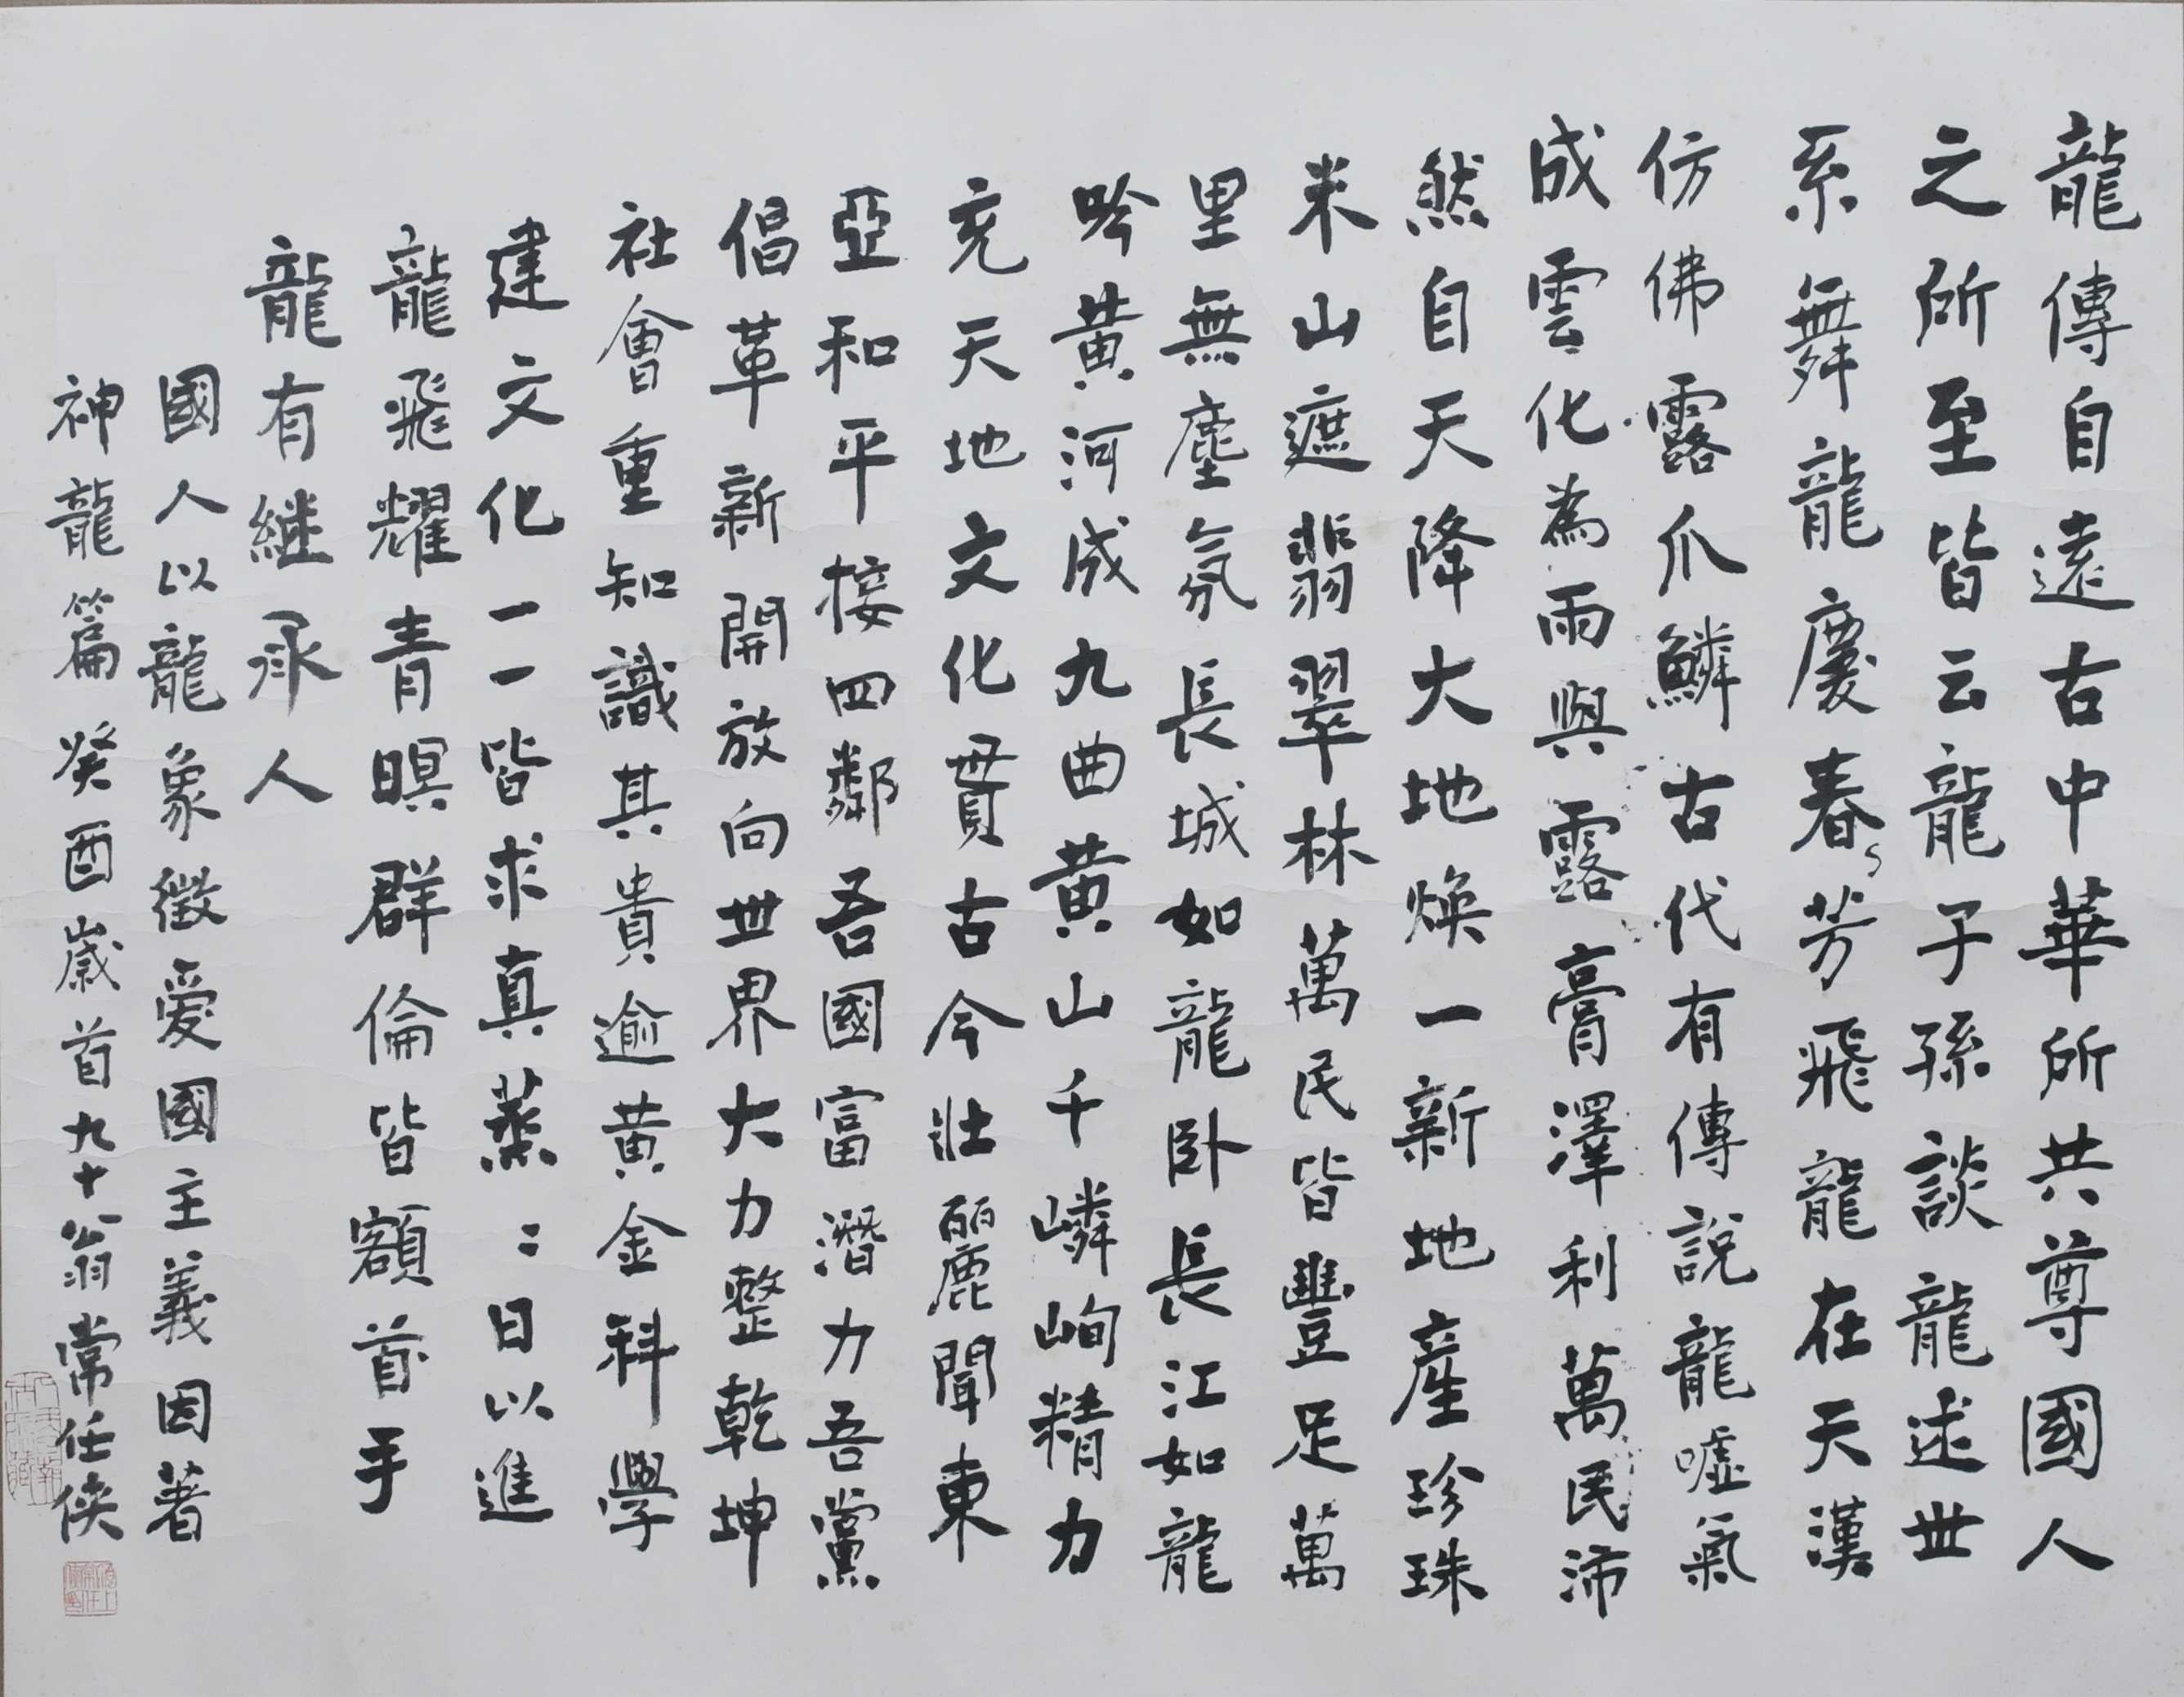 龍傳自遠古中華所共尊國人
之所至皆云龍子孫談龍述世
系舞龍慶春芳飛龍在天漢
仿佛露爪鱗古代有傳說龍噓氣
成雲化為雨與露膏澤利萬民沛
然自天降大地煥一新地產珍珠
米山遮翡翠林萬民皆豐足萬
里無塵氛長城如龍卧長江如龍
吟黃河成九曲黃山千嶙峋精力
充天地文化貫古今壯麗聞東
亞和平接四鄰吾國富潛力吾黨
倡革新開放向世界大力整乾坤
社會重知識其貴逾黃金科學
建文化一一皆求真蒸〻日以進
龍飛耀青暝群倫皆額首手
龍有継承人
國人以龍象徵爱國主義因著
神龍篇癸酉歲首九十翁常任俠